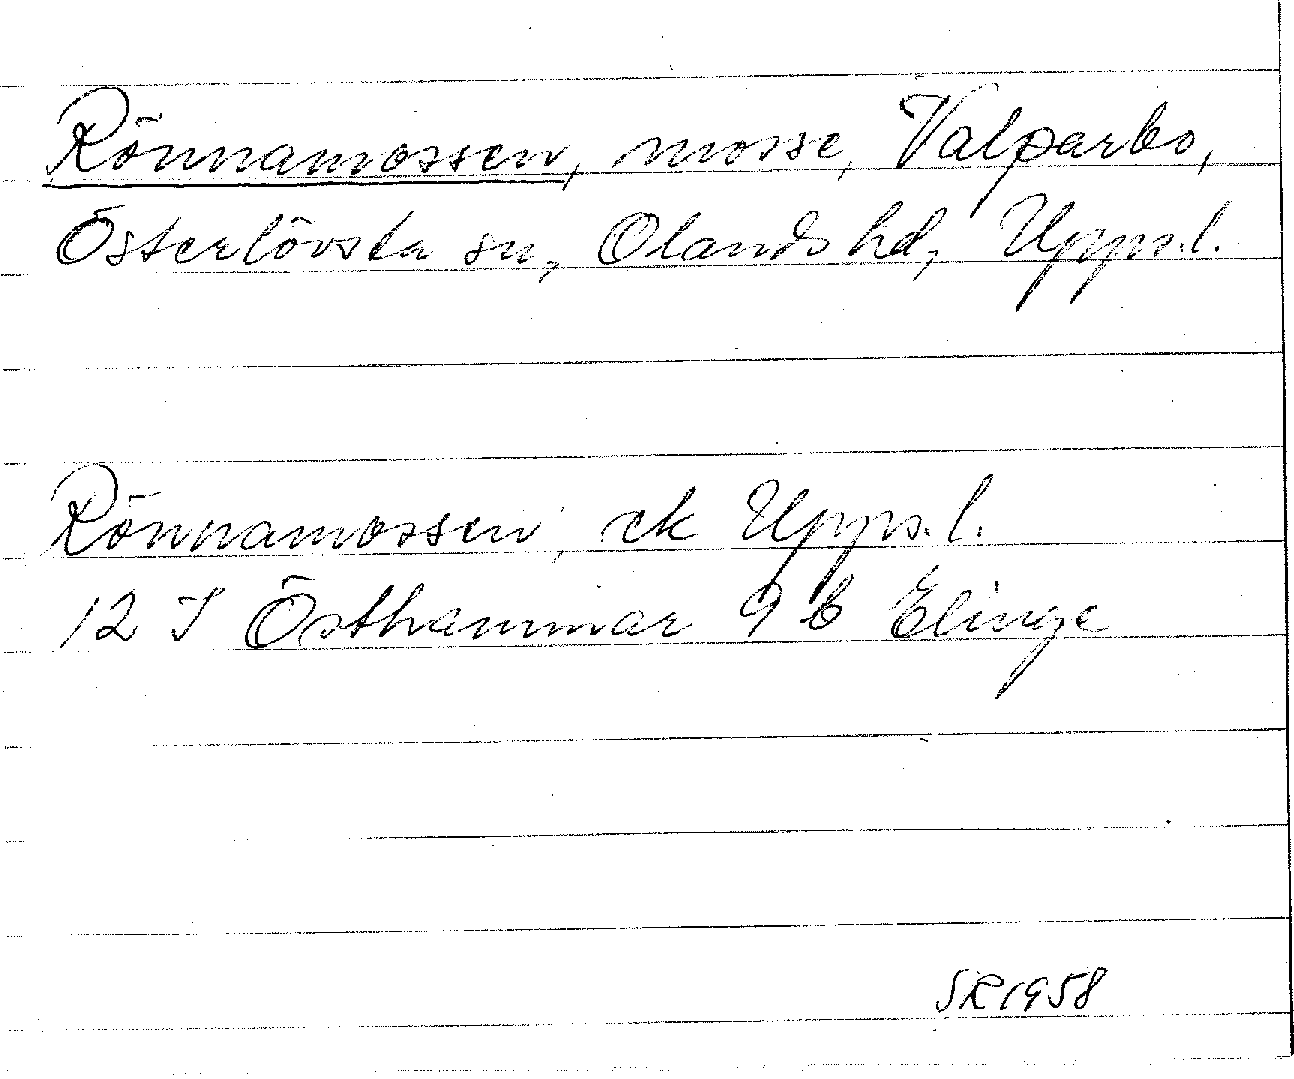 Rönnamossen, mosse, Valparbo,
Österlövsta sn, Olands hd, Upps.l.
Rönnamossen, ek Upps.l.
12 I Östhammar 9 b Elinge
SR 1958